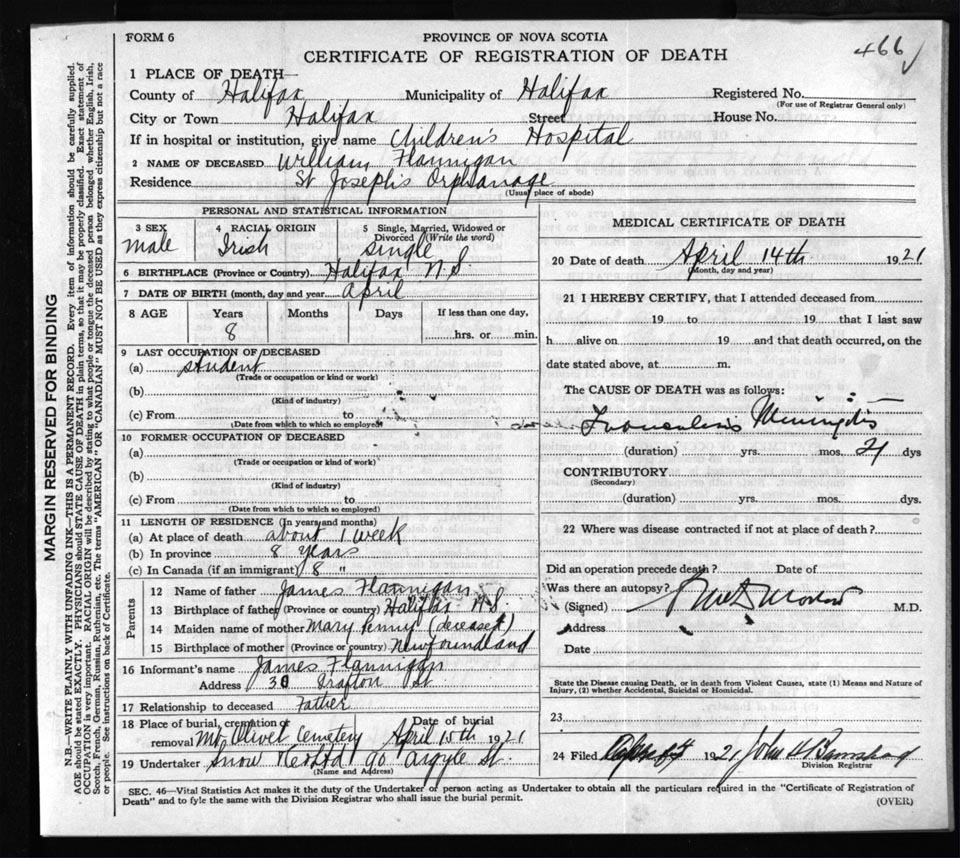 FORM 6
PROVINCE OF NOVA SCOTIA
CERTIFICATE OF REGISTRATION OF DEATH
466
1 PLACE OF DEATH—
County of Halifax Municipality of Halifax Registered No.
(For use of Registrar General only)
City or Town Halifax Street House No.
If in hospital or institution, give name Children's Hospital
2 NAME OF DECEASED William Flannigan
Residence St Joseph's Orphanage
(Usual place of abode)
PERSONAL AND STATISTICAL INFORMATION
3 SEX 4 RACIAL ORIGIN 5 Single, Married, Widowed or Divorced (Write the word)
male Irish single
6 BIRTHPLACE (Province or Country) Halifax N.S.
7 DATE OF BIRTH (month, day and year) April
8 AGE Years Months Days If less than one day,
8 hrs. or min.
9 LAST OCCUPATION OF DECEASED
(a) student
(Trade or occupation or kind or work)
(b)
(Kind of industry)
(c) From to
(Date from which to which so employed
10 FORMER OCCUPATION OF DECEASED
(a)
(Trade or occupation or kind of work)
(b)
(Kind of industry)
(c) From to
(Date from which to which so employed)
11 LENGTH OF RESIDENCE (In years and months)
(a) At place of death about 1 week
(b) In province 8 years
(c) In Canada (if an immigrant) 8 "
Parents
12 Name of father James Flannigan
13 Birthplace of father (Province or country) Halifax N.S.
14 Maiden name of mother Mary Penny (deceased)
15 Birthplace of mother (Province or country) Newfoundland
16 Informant's name James Flannigan
Address 30 Grafton St
17 Relationship to deceased Father
18 Place of burial, cremation or removal Mt Olivet Cemetery Date of burial April 15th 1921
19 Undertaker Snow 90 Argyle St.
(Name and Address)
MEDICAL CERTIFICATE OF DEATH
20 Date of death April 14th 1921
(Month, day and year)
21 I HEREBY CERTIFY, that I attended deceased from
19 to 19 that I last saw
h alive on 19 and that death occurred, on the
date stated above, at m.
The CAUSE OF DEATH was as follows:
Meningitis
(duration) yrs. mos. 21 dys
CONTRIBUTORY
(Secondary)
(duration) yrs. mos. dys.
22 Where was disease contracted if not at place of death?
Did an operation precede death? Date of
Was there an autopsy?
(Signed) M.D.
Address
Date
State the Disease causing Death, or in death from Violent Causes, state (1) Means and Nature of
Injury, (2) whether Accidental, Suicidal or Homicidal.
23
24 Filed 1921 John
Division Registrar
SEC. 46—Vital Statistics Act makes it the duty of the Undertaker or person acting as Undertaker to obtain all the particulars required in the "Certificate of Registration of
Death" and to fyle the same with the Division Registrar who shall issue the burial permit.
(OVER)
MARGIN RESERVED FOR BINDING
N.B.—WRITE PLAINLY WITH UNFADING INK—THIS IS A PERMANENT RECORD. Every item of information should be carefully supplied.
AGE should be stated EXACTLY. PHYSICIANS should STATE CAUSE OF DEATH in plain terms, so that it may be properly classified. Exact statement of
OCCUPATION is very important. RACIAL ORIGIN will be described by stating to what people or tongue the deceased person belonged whether English, Irish,
Scotch, French, German, Russian, Ruthenian, etc. The terms "AMERICAN" OR "CANADIAN" MUST NOT BE USED as they express citizenship but not a race
or people. See instructions on back of Certificate.